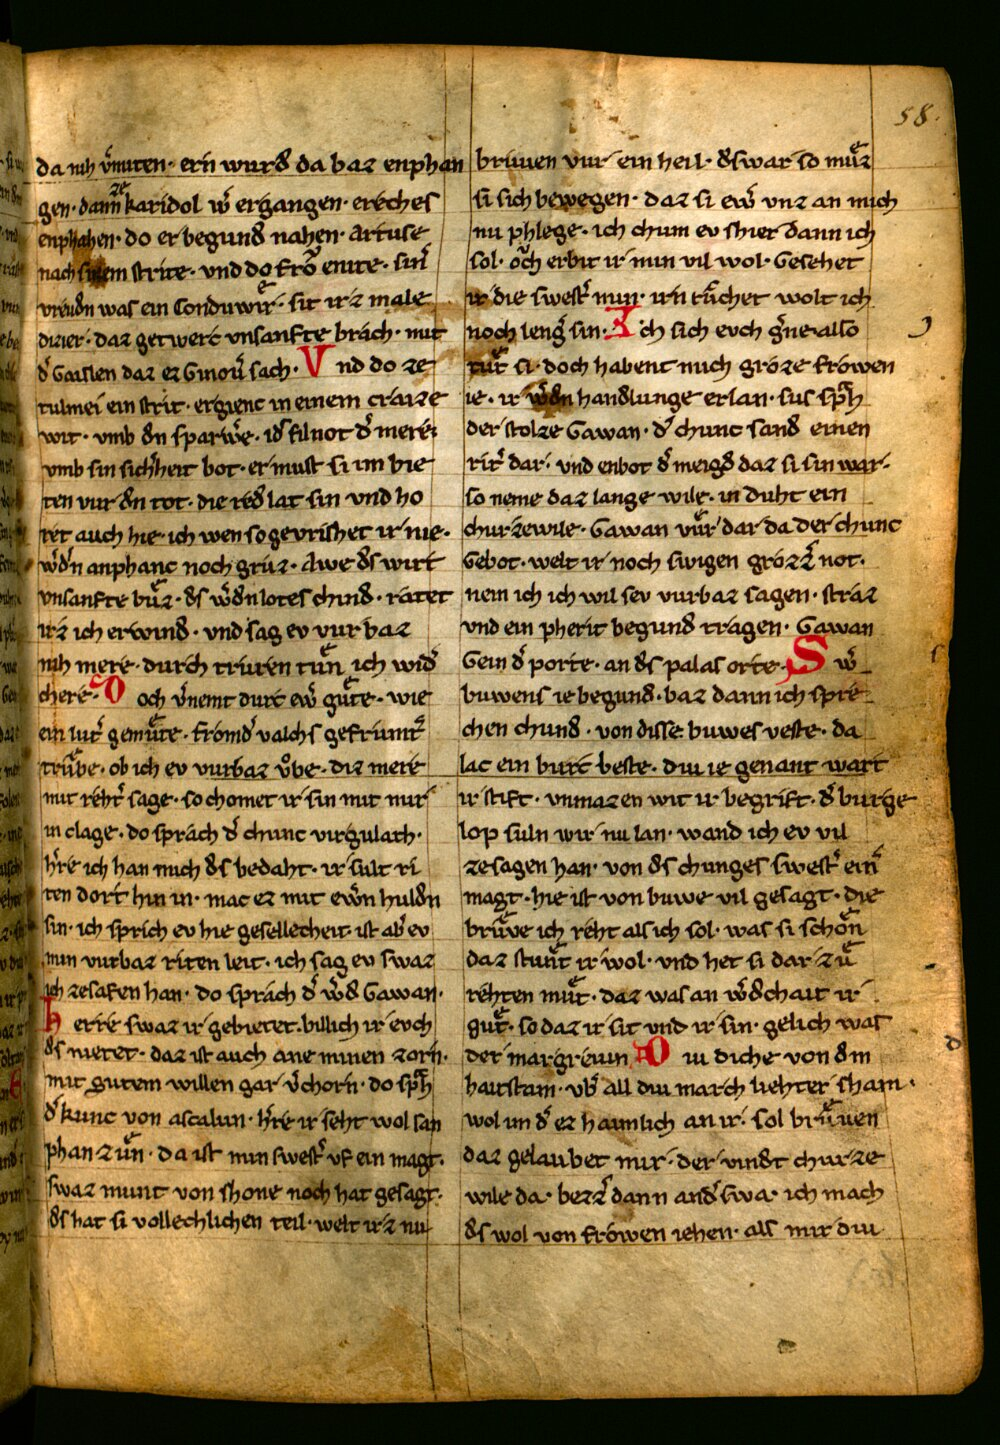 58.
da nih v̄muten · ern wurd da baz enphan
gen · dann ze karidol w̄ ergangen · ereches
enphahen · do er begund nahen · Artuse
nach sinem strite · vnd do fro̊ enite · sin̄
vreudn was ein Conduwir · sit irz male
dizier · daz getwerc vnsanfte brach · mit
d̾ Gaislen daz ez Ginou̾ sach · Vnd do ze
tulmei ein strit · ergienc in einem craize
wit · vmb dn sparw̾e · id̾ fil not d̾ mere
vmb sin sicherheit bot · er must si im bie
ten vur dn tot · die red lat sin vnd ho
ret auch hie · ich wen so gevrishet ir nie ·
w̾dn anphanc noch gruz · Awe ds wirt
vnsanfte buz · ds w̾dn lotes chind · ratet
irz ich erwind · vnd sag ev vurbaz
nih mere · durch triuren tun ich wid̾
chere · Doch v̾nemt durc ew̾ gute · wie
ein lut̾ gemute · fromd̾ valchs gefrumt̾
trube · ob ich ev vurbaz vͦbe · diz mere
mit reht̾ sage · so chomet ir sin mit mir
in clage · do sprach d̾ chunc virgulath ·
h̾re ich han mich ds bedaht · ir sult ri
ten dort hin in · mac ez mit ew̾n huldn
sin · ich sprich ev hie gesellecheit · ist ab̾ ev
min vurbaz riten leit · ich sag ev swaz
ich zesafen han · do sprach d̾ w̾d Gawan ·
Herre swaz ir gebietet · billich ir evch
ds nietet · daz ist auch ane minen zorn ·
mit gutem willen gar v̾chorn · do sp̾ch
d̾ kunc von ascalun · h̾re ir seht wol san
phanzun · da ist min swest̾ vf ein magt ·
swaz munt von shone noch hat gesagt ·
ds hat si vollechlichen teil · welt irz nu
bruven vur ein heil · dswar so muz
si sich bewegen · daz si ew̾ vnz an mich
nu phlege · ich chum ev shier dann ich
sol · och erbit ir min vil wol · Gesehet
ir die swest̾ min · irn ruchet wolt ich
noch leng̾ sin · Ich sich evch g̾ne · also
tut si · doch habent mich groze frowen
ie · ir w̾dn handlunge erlan · sus sp̾ch
der stolze Gawan · d̾ chunc sand einen
rit̾ dar · vnd enbot d̾ meigd daz si sin war ·
so neme daz lange wile · in duht ein
churzewile · Gawan vur dar da der chunc
Gebot · welt ir noch swigen grozz̾ not ·
nem ich ich wil sev vurbaz sagen · straz
vnd ein pherit begund tragen · Gawan
Gein d̾ porte · an ds palas orte · Sw̾
buwens ie begund · baz dann ich spre
chen chund · von disse buwes veste · da
lac ein burc beste · diu ie genant wart
ir stift · vnmazen wit ir begrift · d̾ burge
lop suln wir nu lan · wand ich ev vil
zesagen han · von ds chunges swest̾ ein̾
magt · hie ist von buwe vil gesagt · die
bruve ich reht als ich sol · was si schon
daz stunt ir wol · vnd het si dar zu
rehten mut · daz was an w̾dchait ir
gut · so daz ir sit vnd ir sin · gelich was
der margrevin Diu diche von dm
haitstain · vb̾ all diu march liehter shain ·
wol im d̾ ez haimlich an ir · sol bruven
daz gelaubet mir · der vindt churze
wile da · bezz̾ dann and̾swa · ich mach
ds wol von frowen iehen · als mir diu